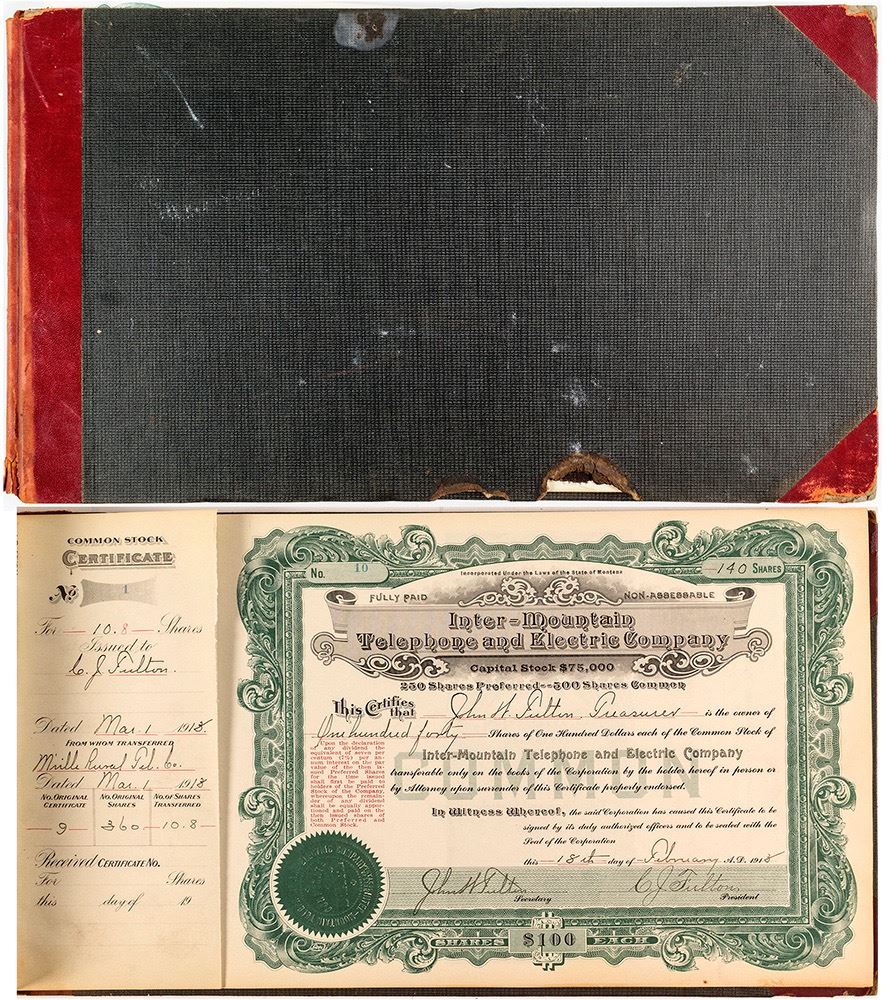 COMMON STOCK
CERTIFICATE
No 1
For 10.8 Shares
Issued to
C. J. Fulton.
Dated Mar. 1 1918.
FROM WHOM TRANSFERRED
Rural Tel. Co.
Dated Mar. 1 1918
No. ORIGINAL CERTIFICATE No. ORIGINAL SHARES No. OF SHARES TRANSFERRED
9 360 10.8
Received CERTIFICATE No.
For Shares
this day of 19
No. 10
Incorporated Under the Laws of the State of Montana
140 SHARES
FULLY PAID NON-ASSESSABLE
Inter-Mountain
Telephone and Electric Company
Capital Stock $75,000
250 Shares Preferred--500 Shares Common
This Certifies that John H. Fulton, Treasurer is the owner of
One hundred forty Shares of One Hundred Dollars each of the Common Stock of
Inter-Mountain Telephone and Electric Company
transferable only on the books of the Corporation by the holder hereof in person or
by Attorney upon surrender of this Certificate properly endorsed.
Upon the declaration
of any dividend the
equivalent of seven per
centum (7%) per an-
num interest on the par
value of the then is-
sued Preferred Shares
for the time issued
shall first be paid to
holders of the Preferred
Stock of the Company,
whereupon the remain-
der of any dividend
shall be equally appor-
tioned and paid on the
then issued shares of
both Preferred and
Common Stock.
COMMON
In Witness Whereof, the said Corporation has caused this Certificate to be
signed by its duly authorized officers and to be sealed with the
Seal of the Corporation
this 18th day of February A.D. 1918
John H Fulton
Secretary
C J Fulton
President
SHARES $100 EACH